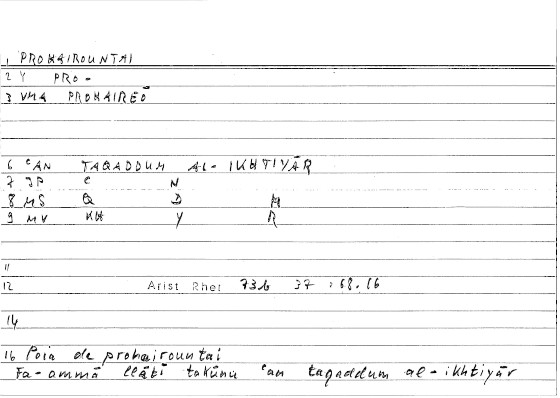 1 PROHAIROUNTAI
2 Y PRO-
3 VMA PROHAIREŌ
6 ʿAN TAQADDUM AL-IKHTIYĀR
7 JP ʿ N
8 MS Q D M
9 MV KH Y R
11
12 Arist Rhet 73b 37 : 68.16
14
16 Poia de prohairountai
Fa-ammā llātī takūnu ʿan taqaddum al-ikhtiyār